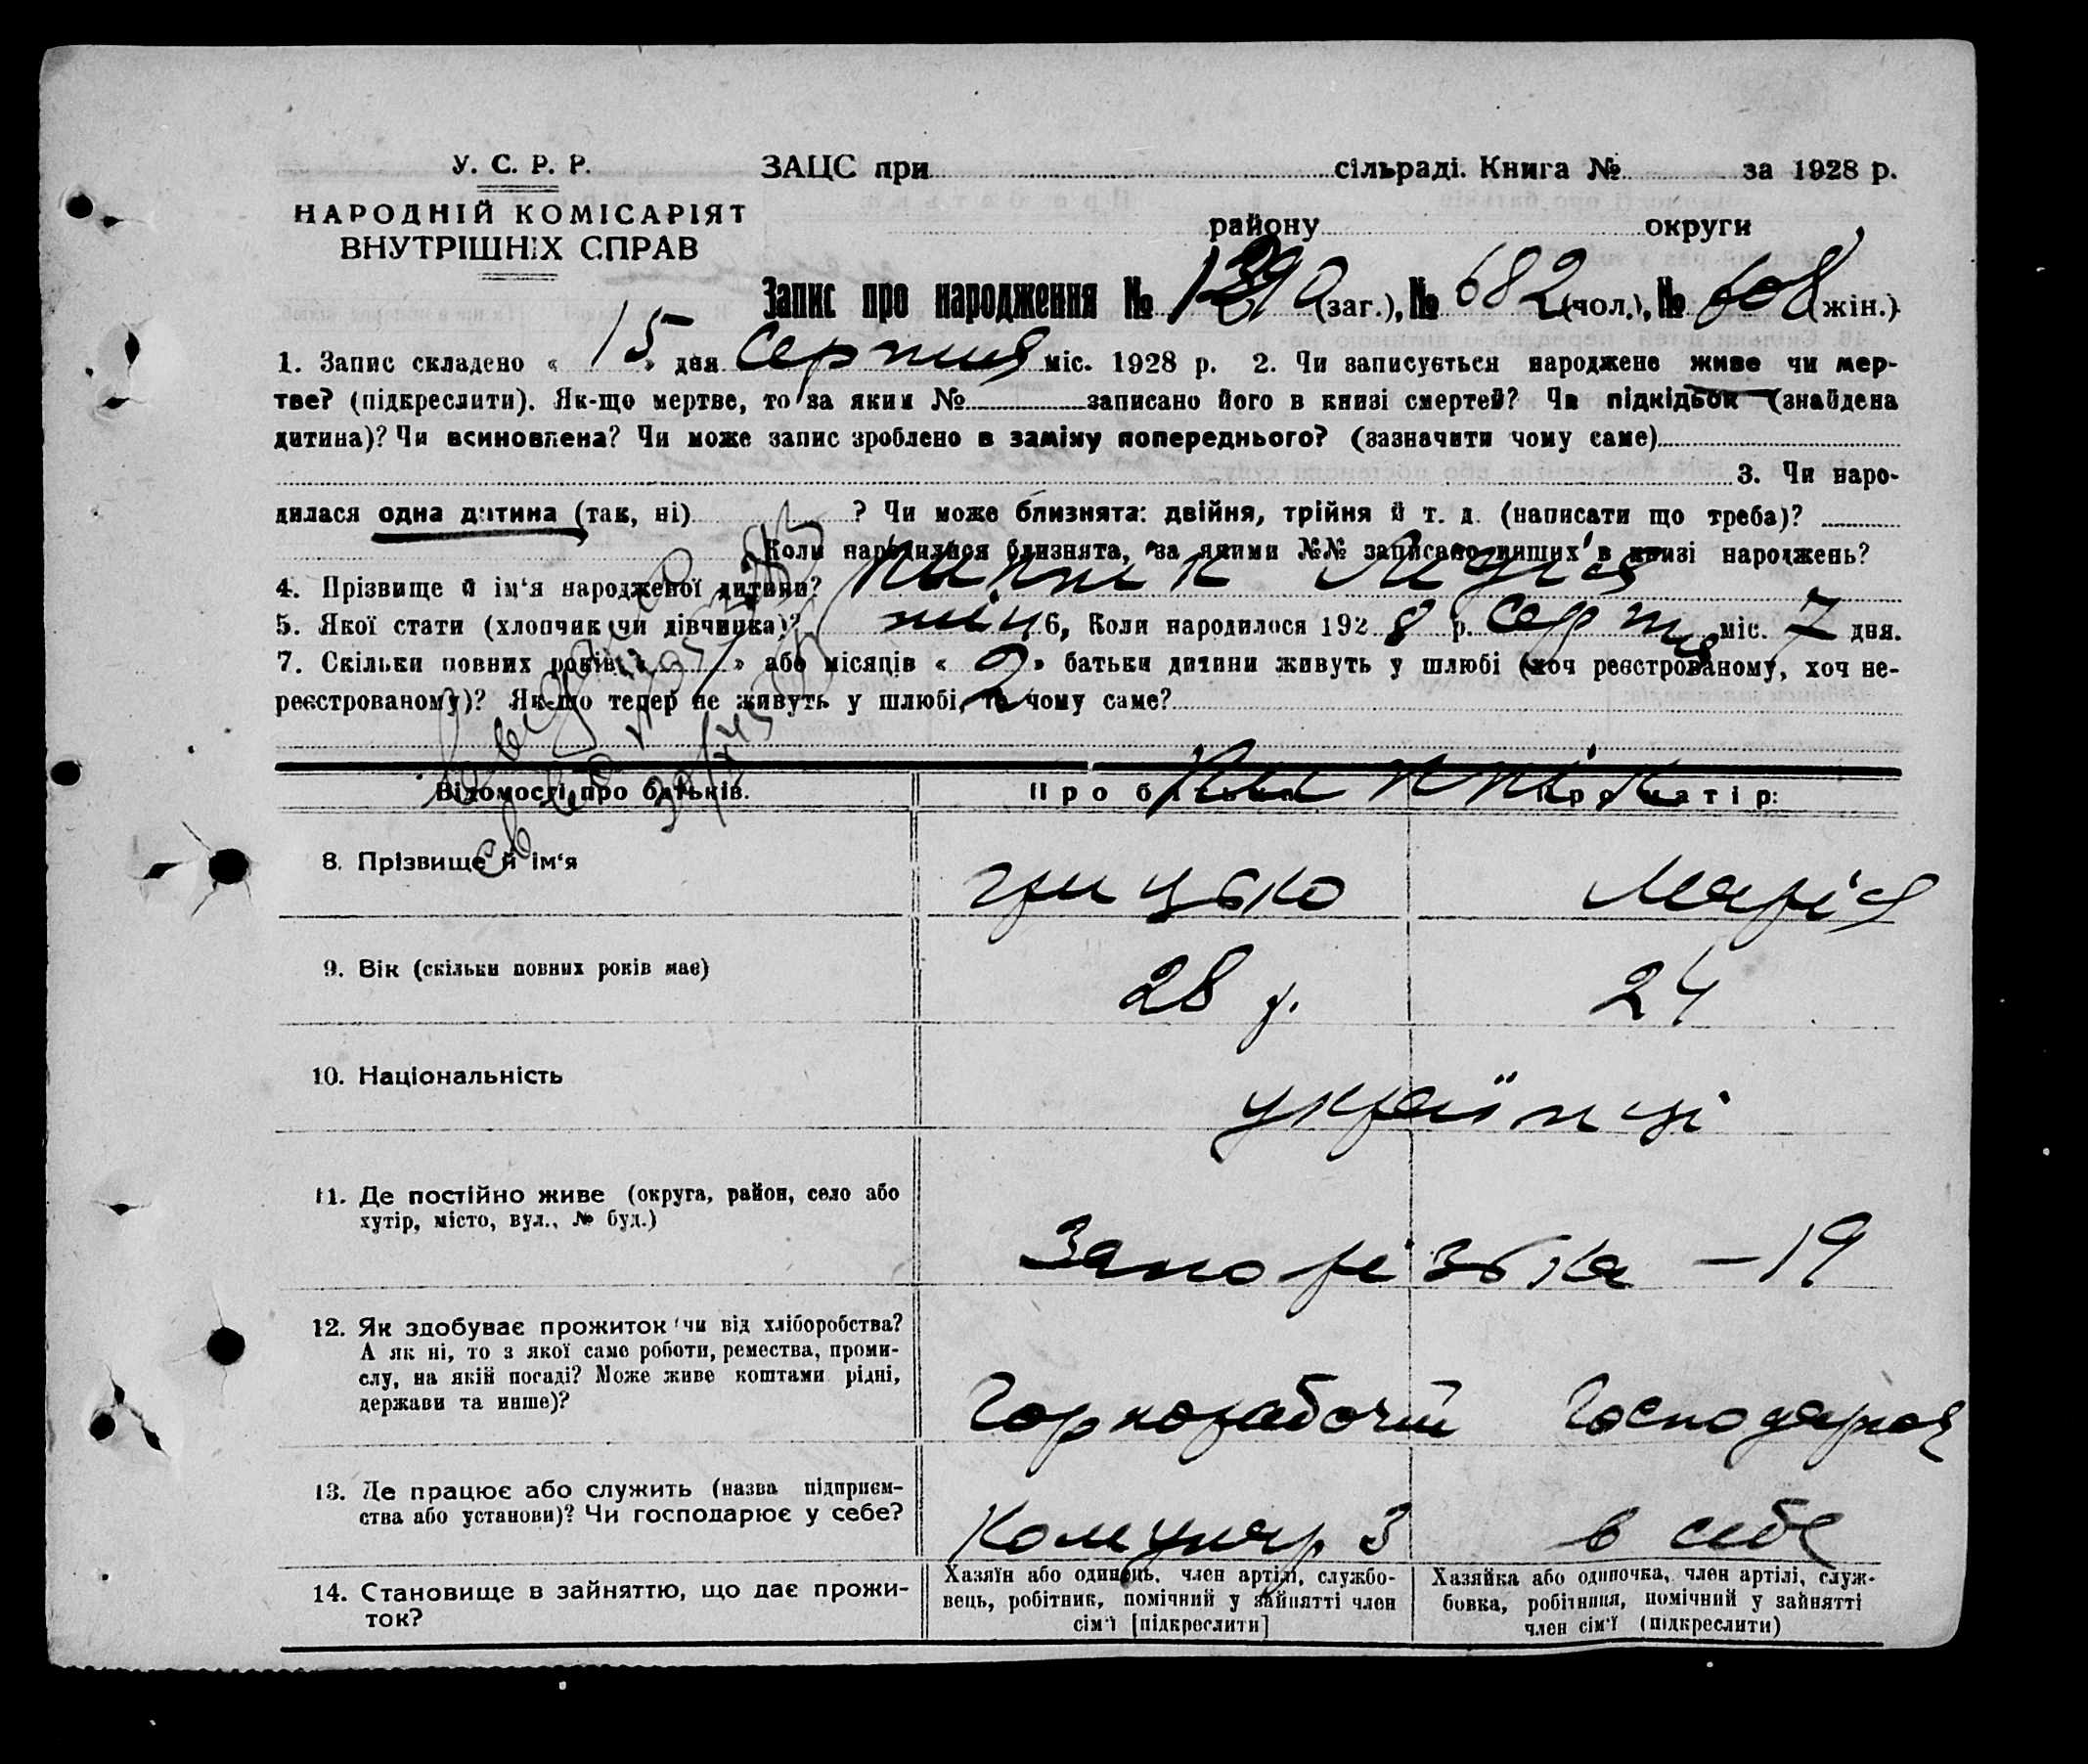 У. С. Р. Р.
НАРОДНІЙ КОМІСАРІЯТ
ВНУТРІШНІХ СПРАВ
ЗАЦС при сільраді. Книга № за 1928 р.
району округи
Запис про народження № (заг.), № 682 (чол.), № 608 (жін.)
1. Запис складено « 15 » дня серпня міс. 1928 р. 2. Чи записується народжене живе чи мер-
тве? (підкреслити). Як-що мертве, то за яким № записано його в книзі смертей? Чи підкідьок (знайдена
дитина)? Чи всиновлена? Чи може запис зроблено в заміну попереднього? (зазначити чому саме)
3. Чи наро-
дилася одна дитина (так, ні) ? Чи може близнята: двійня, трійня й т. д. (написати що треба)?
Коли народилися близнята, за якими №№ записано инших в книзі народжень?
4. Прізвище й ім'я народженої дитини? Лидія
5. Якої стати (хлопчик чи дівчинка)? жін 6, Коли народилося 1928 р. серпня міс. 7 дня.
7. Скільки повних років « » або місяців « 2 » батьки дитини живуть у шлюбі (хоч реєстрованому, хоч не-
реєстрованому)? Як-що тепер не живуть у шлюбі, то чому саме?
Відомості про батьків. Про батька Про матір:
8. Прізвище й ім'я Грицько Марія
9. Вік (скільки повних років має) 28 р. 24
10. Національність українці
11. Де постійно живе (округа, район, село або
хутір, місто, вул., № буд.)
Запорізька – 19
12. Як здобуває прожиток чи від хліборобства?
А як ні, то з якої саме роботи, ремества, проми-
слу, на якій посаді? Може живе коштами рідні,
держави та инше)?
Горнорабочий Господарка
13. Де працює або служить (назва підприєм-
ства або установи)? Чи господарює у себе?
Комунар 3 в себе
14. Становище в зайняттю, що дає прожи-
ток?
Хазяїн або одинець, член артілі, службо-
вець, робітник, помічний у зайнятті член
сім'ї [підкреслити]
Хазяйка або одиночка, член артілі, служ-
бовка, робітниця, помічний у зайнятті
член сім'ї (підкреслити)